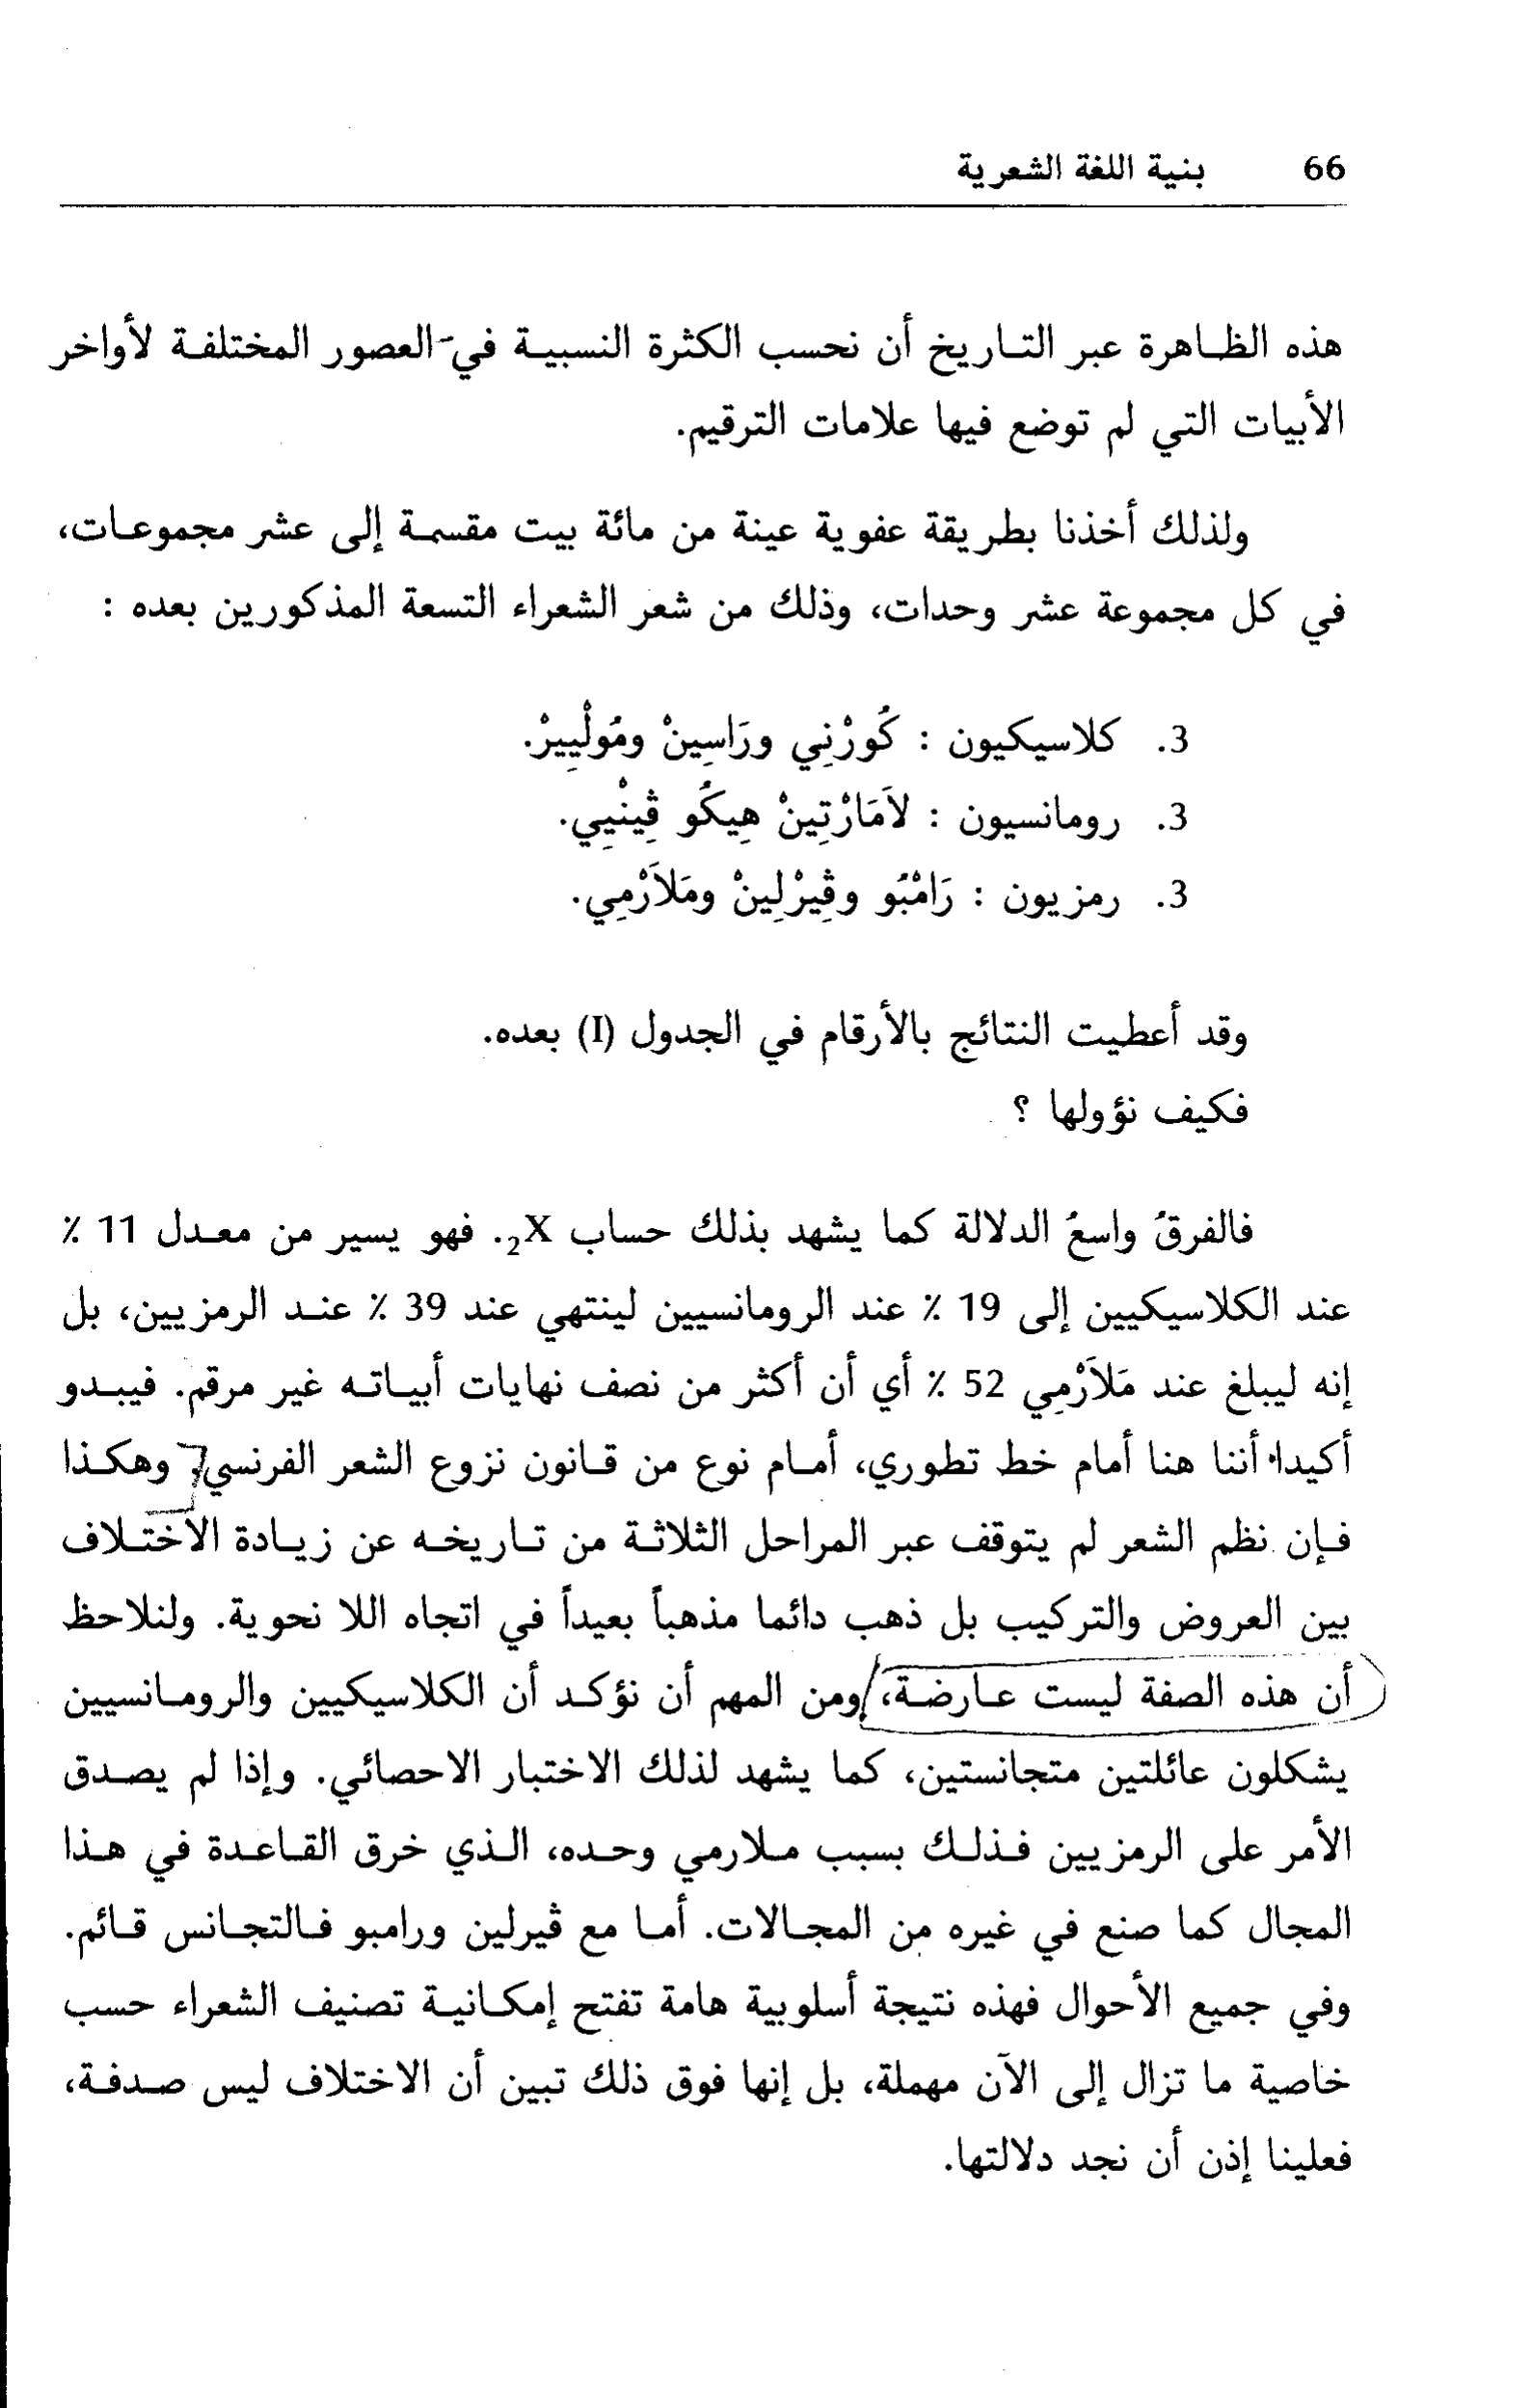 66 بنية اللغة الشعرية
هذه الظاهرة عبر التاريخ أن نحسب الكثرة النسبية في العصور المختلفة لأواخر
الأبيات التي لم توضع فيها علامات الترقيم.
ولذلك أخذنا بطريقة عفوية عينة من مائة بيت مقسمة إلى عشر مجموعات،
في كل مجموعة عشر وحدات، وذلك من شعر الشعراء التسعة المذكورين بعده :
3. كلاسيكيون : كُورْنِي ورَاسِينْ ومُولْيِيرْ.
3. رومانسيون : لاَمَارْتِينْ هِيكُو ڤِينْيِي.
3. رمزيون : رَامْبُو وڤِيرْلِينْ ومَلاَرْمِي.
وقد أعطيت النتائج بالأرقام في الجدول (I) بعده.
فكيف نؤولها ؟
فالفرقُ واسعُ الدلالة كما يشهد بذلك حساب X₂. فهو يسير من معدل 11 ٪
عند الكلاسيكيين إلى 19 ٪ عند الرومانسيين لينتهي عند 39 ٪ عند الرمزيين، بل
إنه ليبلغ عند مَلاَرْمِي 52 ٪ أي أن أكثر من نصف نهايات أبياته غير مرقم. فيبدو
أكيدا أننا هنا أمام خط تطوري، أمام نوع من قانون نزوع الشعر الفرنسي؛ وهكذا
فإن نظم الشعر لم يتوقف عبر المراحل الثلاثة من تاريخه عن زيادة الاختلاف
بين العروض والتركيب بل ذهب دائما مذهباً بعيداً في اتجاه اللا نحوية. ولنلاحظ
أن هذه الصفة ليست عارضة، ومن المهم أن نؤكد أن الكلاسيكيين والرومانسيين
يشكلون عائلتين متجانستين، كما يشهد لذلك الاختبار الاحصائي. وإذا لم يصدق
الأمر على الرمزيين فذلك بسبب ملارمي وحده، الذي خرق القاعدة في هذا
المجال كما صنع في غيره من المجالات. أما مع ڤيرلين ورامبو فالتجانس قائم.
وفي جميع الأحوال فهذه نتيجة أسلوبية هامة تفتح إمكانية تصنيف الشعراء حسب
خاصية ما تزال إلى الآن مهملة، بل إنها فوق ذلك تبين أن الاختلاف ليس صدفة،
فعلينا إذن أن نجد دلالتها.